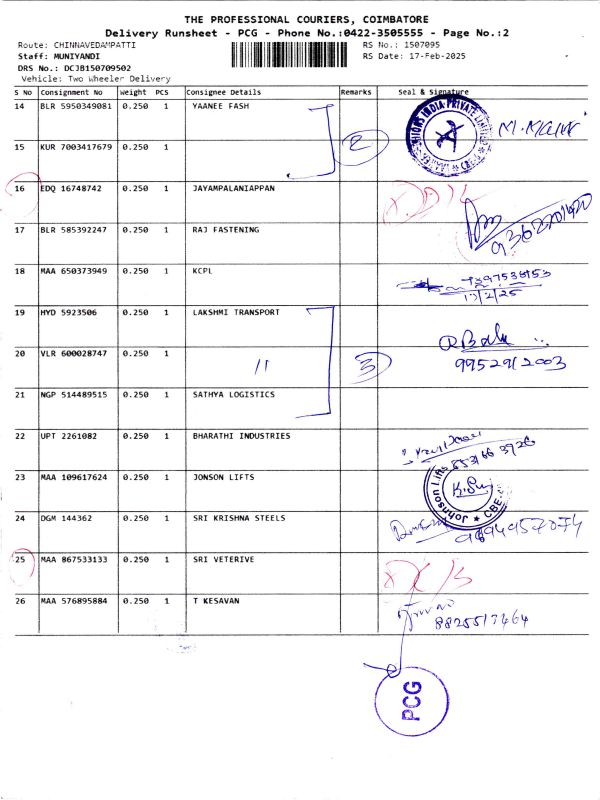 THE PROFESSIONAL COURIERS, COIMBATORE
Delivery Runsheet - PCG - Phone No.:0422-3505555 - Page No.:2
Route: CHINNAVEDAMPATTI RS No.: 1507095
Staff: MUNIYANDI RS Date: 17-Feb-2025
DRS No.: DCJB150709502
Vehicle: Two Wheeler Delivery
S No Consignment No Weight PCS Consignee Details Remarks Seal & Signature
14 BLR 5950349081 0.250 1 YAANEE FASH
15 KUR 7003417679 0.250 1 2
16 EDQ 16748742 0.250 1 JAYAMPALANIAPPAN
17 BLR 585392247 0.250 1 RAJ FASTENING
18 MAA 650373949 0.250 1 KCPL
17/2/25
19 HYD 5923506 0.250 1 LAKSHMI TRANSPORT
20 VLR 600028747 0.250 1 11 3
9952912003
21 NGP 514489515 0.250 1 SATHYA LOGISTICS
22 UPT 2261082 0.250 1 BHARATHI INDUSTRIES
23 MAA 109617624 0.250 1 JONSON LIFTS
Johnson Lifts CBE
24 DGM 144362 0.250 1 SRI KRISHNA STEELS
25 MAA 867533133 0.250 1 SRI VETERIVE
26 MAA 576895884 0.250 1 T KESAVAN
8825517464
PCG